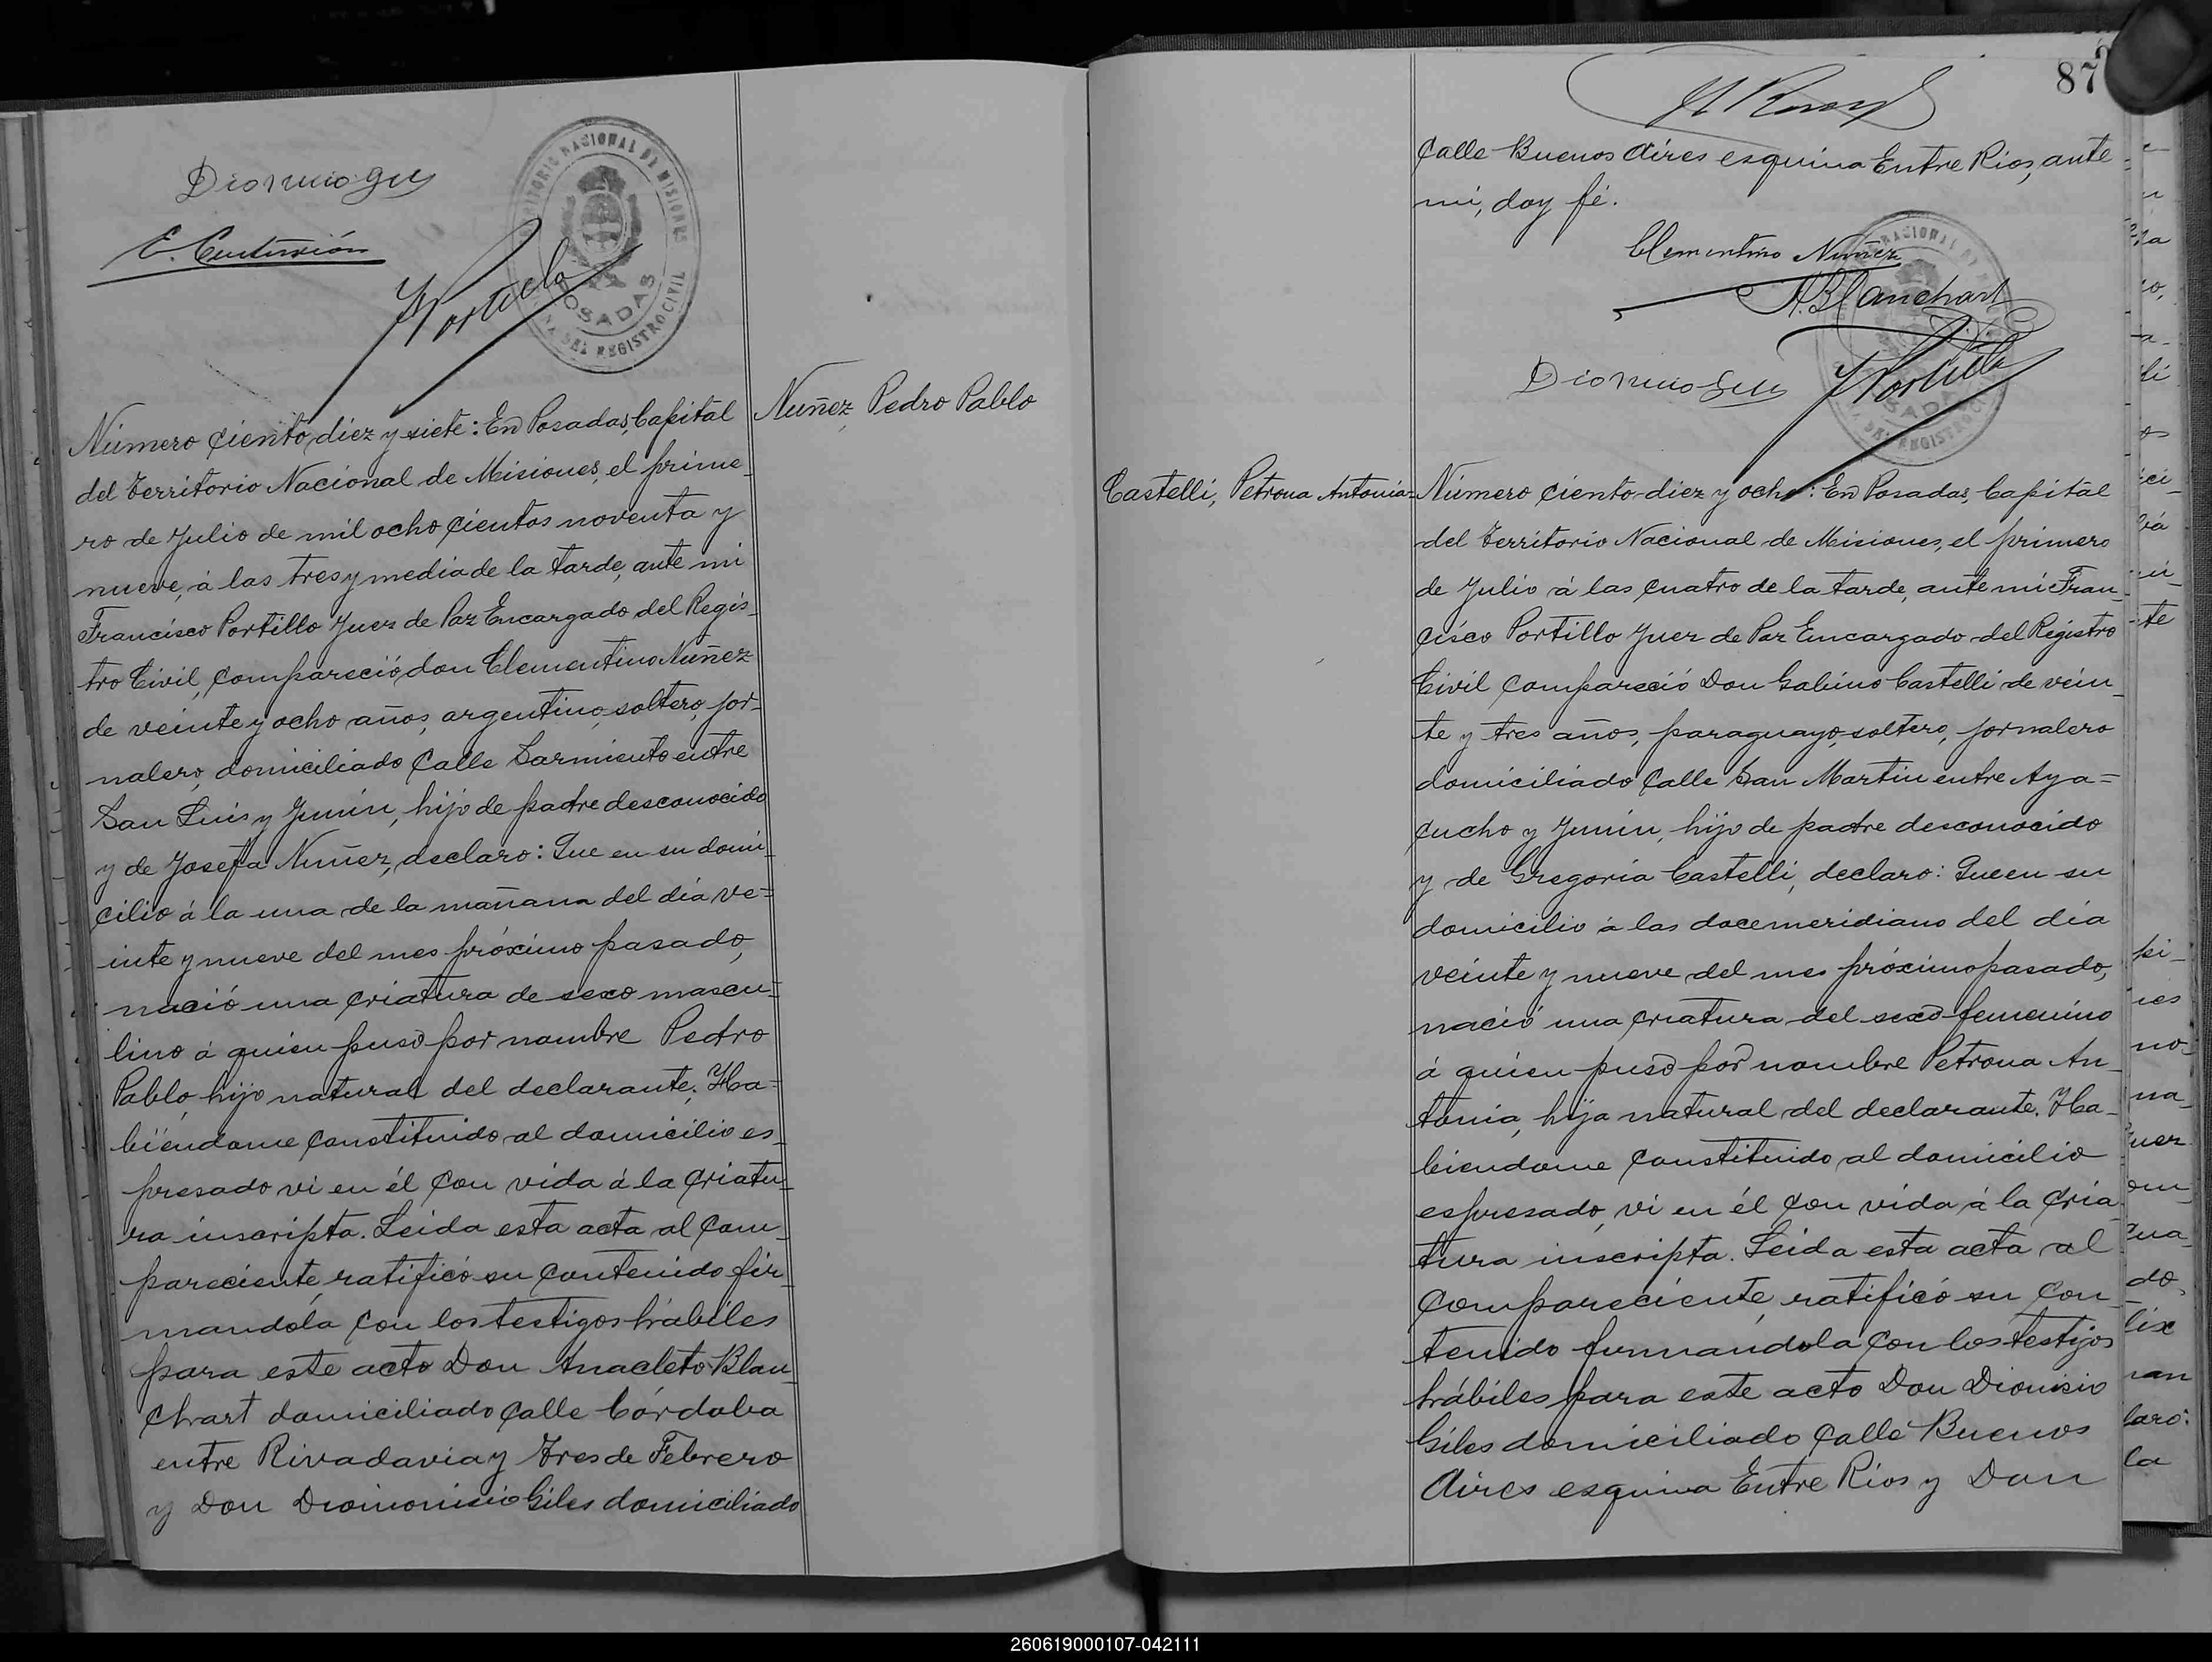 Dionicio Gil
E. Centurión
FPortillo
TERRITORIO NACIONAL DE MISIONES
POSADAS
OFICINA DEL REGISTRO CIVIL
Nuñez, Pedro Pablo
Número ciento diez y siete: En Posadas, Capital
del Territorio Nacional de Misiones, el prime_
ro de Julio de mil ochocientos noventa y
nueve, á las tres y media de la tarde, ante mi
Francisco Portillo Juez de Paz Encargado del Regis_
tro Civil, compareció don Clementino Nuñez
de veinte y ocho años, argentino, soltero, jor_
nalero, domiciliado Calle Sarmiento entre
San Luis y Junin, hijo de padre desconocido
y de Josefa Nuñez, declaro: Que en su domi_
cilio á la una de la mañana del dia ve=
inte y nueve del mes próximo pasado,
nació una criatura de sexo mascu=
lino á quien puso por nombre Pedro
Pablo, hijo natural del declarante. Ha=
biéndome constituido al domicilio es_
presado vi en él con vida á la criatu_
ra inscripta. Leida esta acta al com_
pareciente, ratificó su contenido fir_
mandola con los testigos hábiles
para este acto Don Anacleto Blan_
chart domiciliado calle Córdoba
entre Rivadavia y Tres de Febrero
y Don Diomonisio Giles domiciliado
87
calle Buenos Aires esquina Entre Rios, ante
mi, doy fé.
Clementino Nuñez
A. Blanchart
Dionicio Gil
FPortillo
Castelli, Petrona Antonia=
Número ciento diez y ocho: En Posadas, Capital
del Territorio Nacional de Misiones, el primero
de Julio á las cuatro de la tarde, ante mi Fran_
cisco Portillo Juez de Paz Encargado del Registro
Civil compareció Don Gabino Castelli de vein_
te y tres años, paraguayo, soltero, jornalero
domiciliado calle San Martin entre Aya=
cucho y Junin, hijo de padre desconocido
y de Gregoria Castelli, declaro: Que en su
domicilio á las doce meridiano del dia
veinte y nueve del mes próximo pasado,
nació una criatura del sexo femenino
á quien puso por nombre Petrona An_
tonia, hija natural del declarante. Ha_
biendome constituido al domicilio
espresado, vi en él con vida á la cria_
tura inscripta. Leida esta acta al
compareciente, ratificó su con_
tenido firmandola con los testigos
hábiles para este acto Don Dionisio
Giles domiciliado calle Buenos
Aires esquina Entre Rios y Don
260619000107-042111